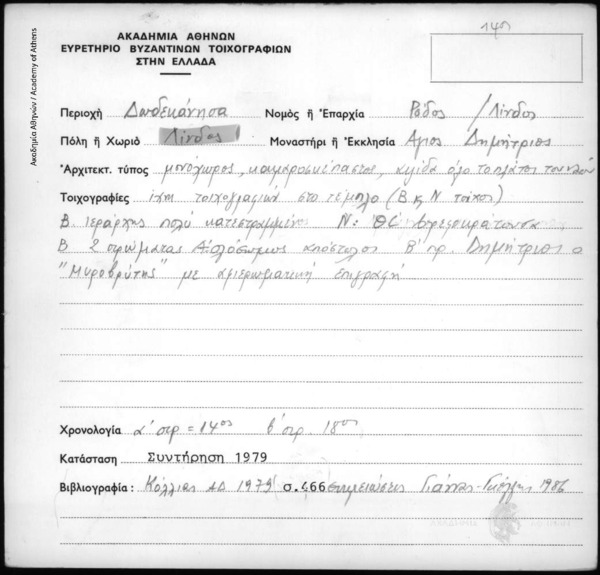 14ος
ΑΚΑΔΗΜΙΑ ΑΘΗΝΩΝ
ΕΥΡΕΤΗΡΙΟ ΒΥΖΑΝΤΙΝΩΝ ΤΟΙΧΟΓΡΑΦΙΩΝ
ΣΤΗΝ ΕΛΛΑΔΑ
Ακαδημία Αθηνών / Academy of Athens
Περιοχή Δωδεκάνησα Νομός ή Ἐπαρχία Ρόδος / Λίνδος
Πόλη ή Χωριό Λίνδος Μοναστήρι ή Ἐκκλησία Άγιος Δημήτριος
Ἀρχιτεκτ. τύπος μονόχωρος, καμαροσκέπαστος, αψίδα όλο το πλάτος του ναού
Τοιχογραφίες ίχνη τοιχογραφιών στο τέμπλο (Β κ Ν τοίχοι)
Β. Ιεράρχης πολύ κατεστραμμένος Ν: ΘC Βρεφοκρατούσα
Β 2 στρώματα Α΄ ολόσωμος απόστολος Β΄ στρ. Δημήτριος ο
"Μυροβλύτης" με αφιερωματική επιγραφή
Χρονολογία α΄ στρ = 14ος β΄ στρ. 18ος
Κατάσταση Συντήρηση 1979
Βιβλιογραφία : Κόλλιας ΑΔ 1979 σ.466 σημειώσεις 1986